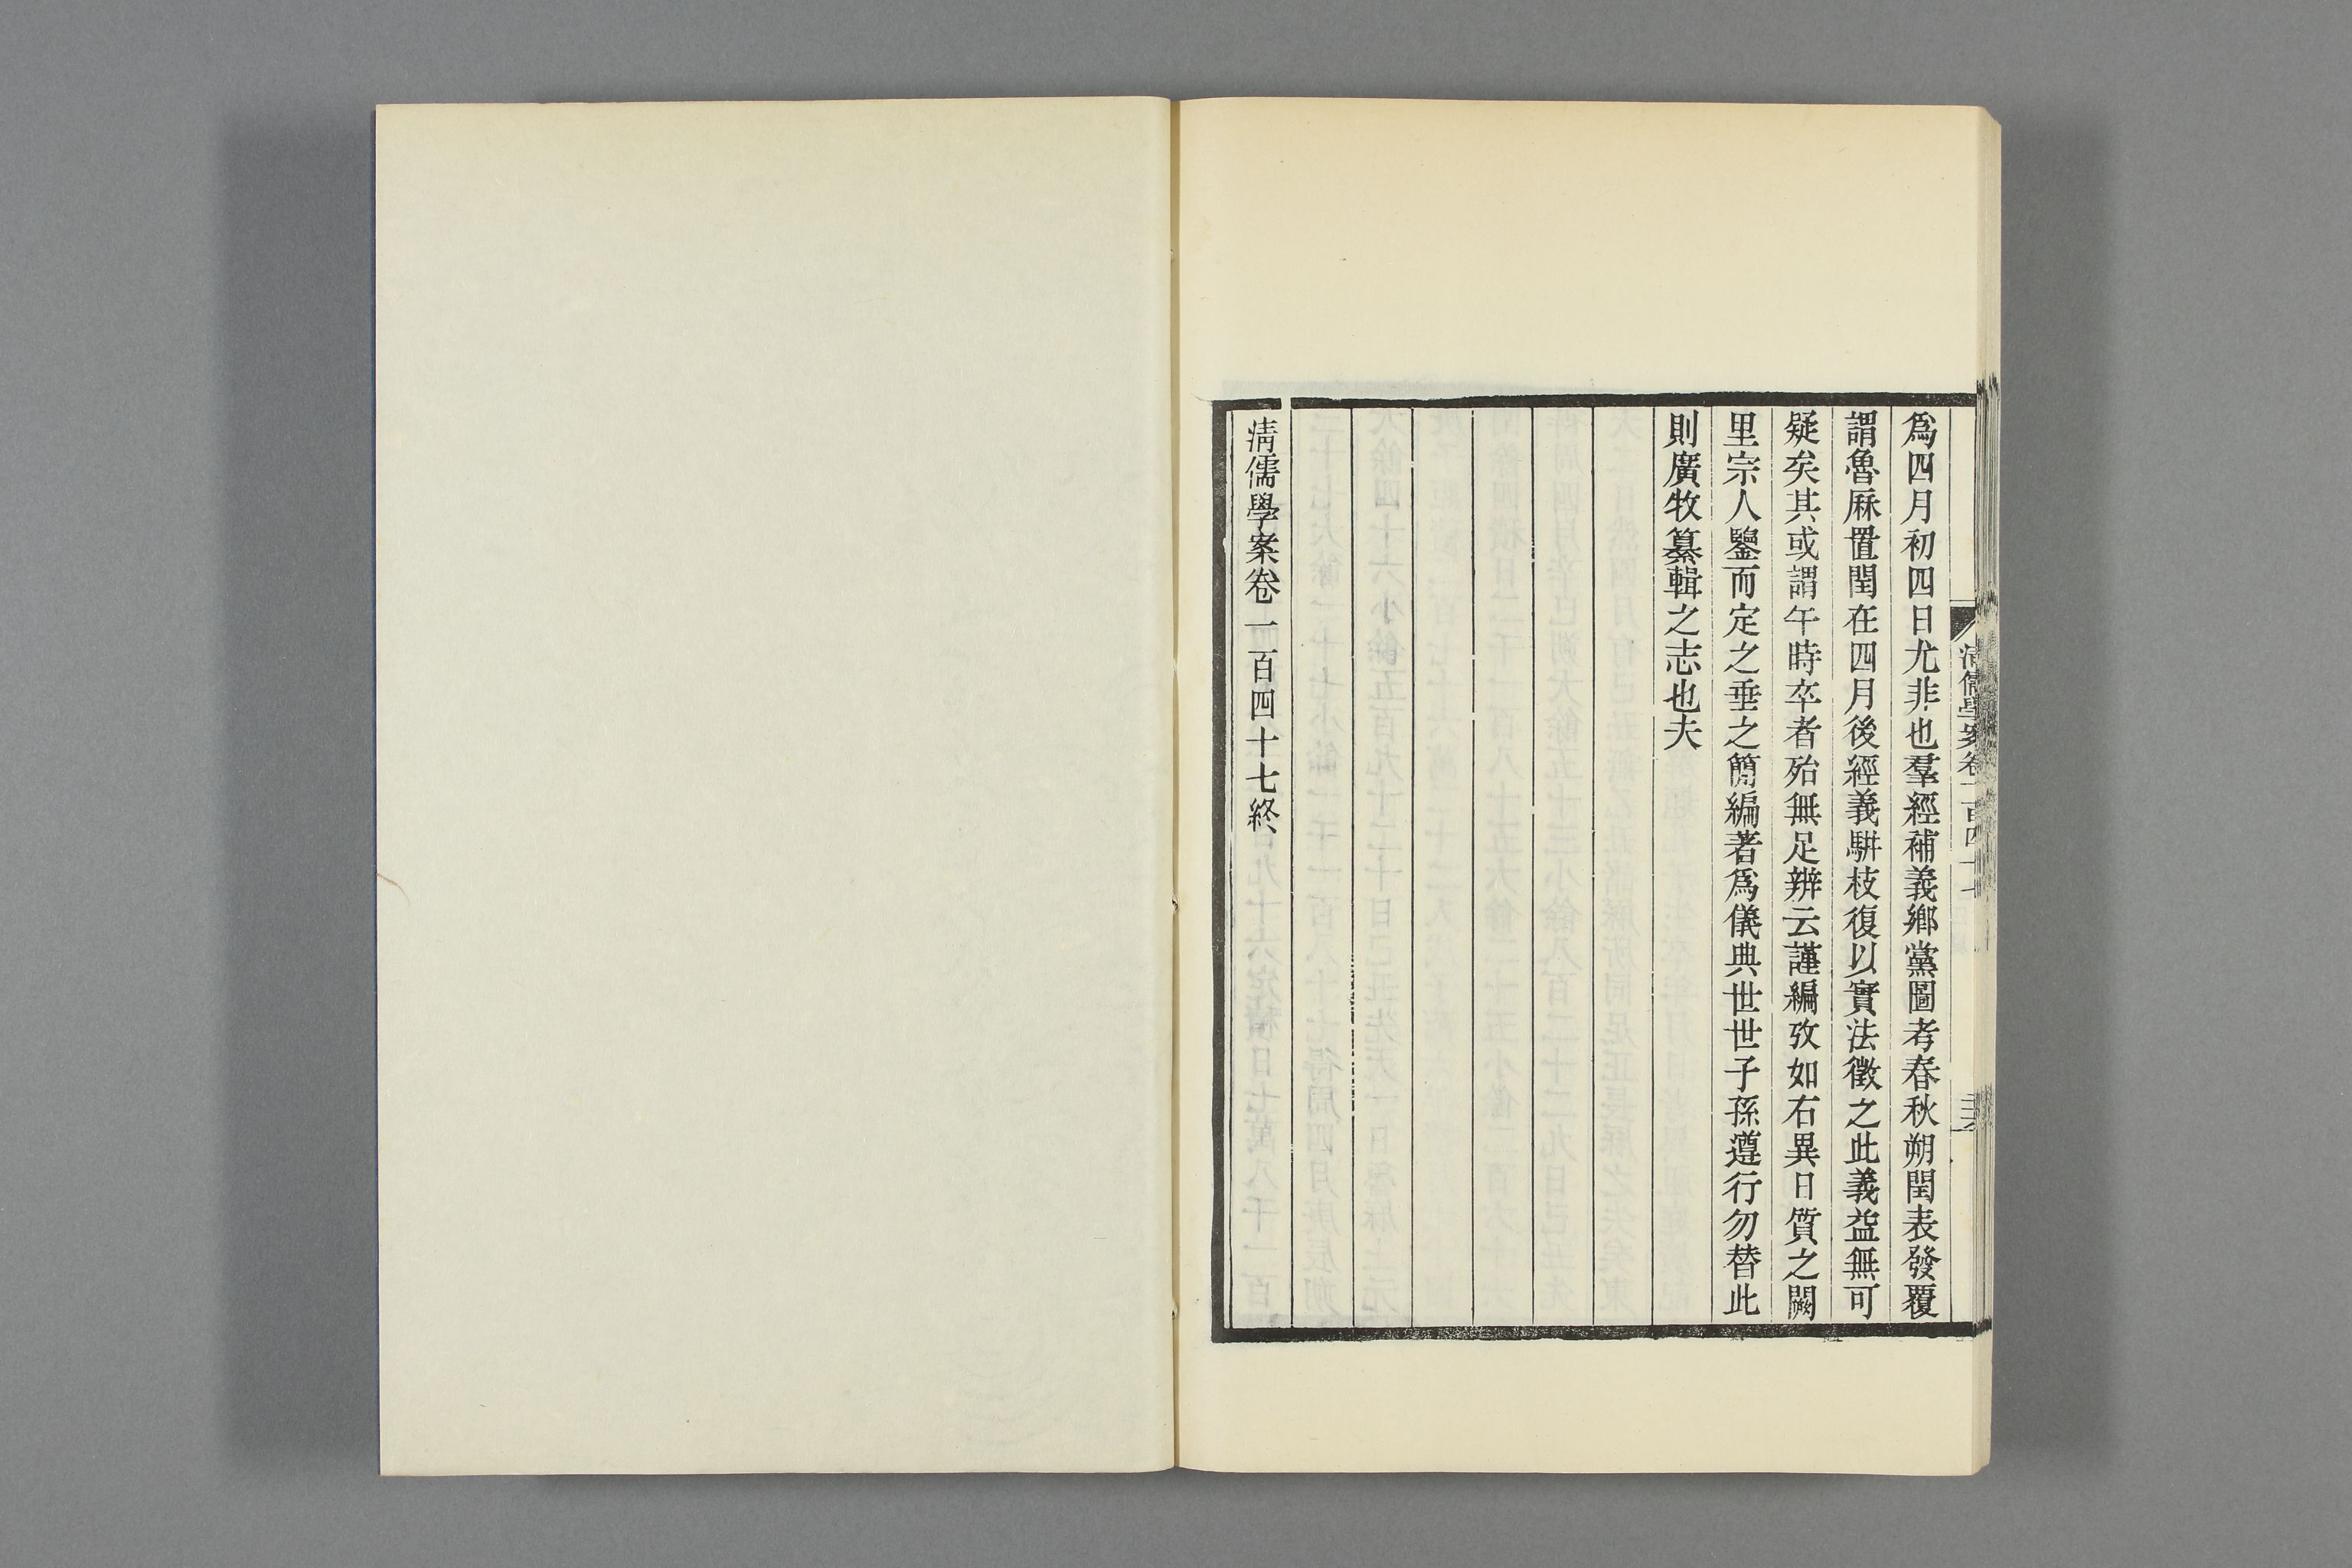 爲四月初四日尤非也羣經補義鄉黨圖考春秋朔閏表發覆
謂魯厤置閏在四月後經義駢枝復以實法徵之此義益無可
疑矣其或謂午時卒者殆無足辨云謹編攷如右異日質之闕
里宗人鑒而定之垂之簡編著爲儀典世世子孫遵行勿替此
則廣牧纂輯之志也夫
清儒學案卷一百四十七終
清儒學案卷一百四十七